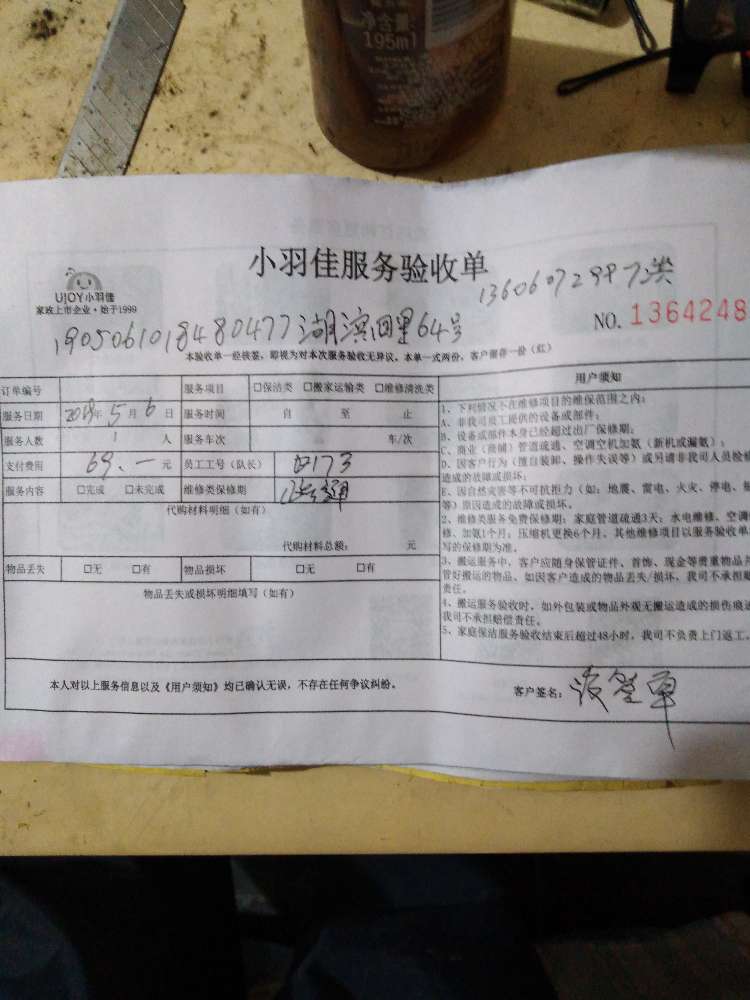 净含量:
195ml
小羽佳服务验收单
UJOY小羽佳
家政上市企业·始于1999
NO. 1364248
1905061018480477 湖滨四里64号
本验收单一经核签,即视为对本次服务验收无异议。本单一式两份,客户留存一份(红)
订单编号 服务项目 □保洁类 □搬家运输类 □维修清洗类
服务日期 2019年5月6日 服务时间 自 至 止
服务人数 1 人 服务车次 车/次
支付费用 69.一元 员工工号(队长) 173
服务内容 □完成 □未完成 维修类保修期
代购材料明细(如有)
代购材料总额: 元
物品丢失 □无 □有 物品损坏 □无 □有
物品丢失或损坏明细填写(如有)
用户须知
1、下列情况不在维修项目的维保范围之内:
A、非我司员工提供的设备或部件;
B、设备或部件本身已经超过出厂保修期;
C、商业(商铺)管道疏通、空调空机加氨(新机或漏氨);
D、因客户行为(擅自装卸、操作失误等)或另请非我司人员检修
造成的故障或损坏;
E、因自然灾害等不可抗拒力(如:地震、雷电、火灾、停电、
等)原因造成的故障或损坏。
2、维修类服务免费保修期:家庭管道疏通3天;水电维修、空调
修、加氨1个月;压缩机更换6个月。其他维修项目以服务验收单
写的保修期为准。
3、搬运服务中,客户应随身保管证件、首饰、现金等贵重物品并
管好搬运的物品、如因客户造成的物品丢失/损坏,我司不承担
责任。
4、搬运服务验收时,如外包装或物品外观无搬运造成的损伤痕迹
我司不承担赔偿责任。
5、家庭保洁服务验收结束后超过48小时,我司不负责上门返工。
本人对以上服务信息以及《用户须知》均已确认无误,不存在任何争议纠纷。
客户签名: 没签单